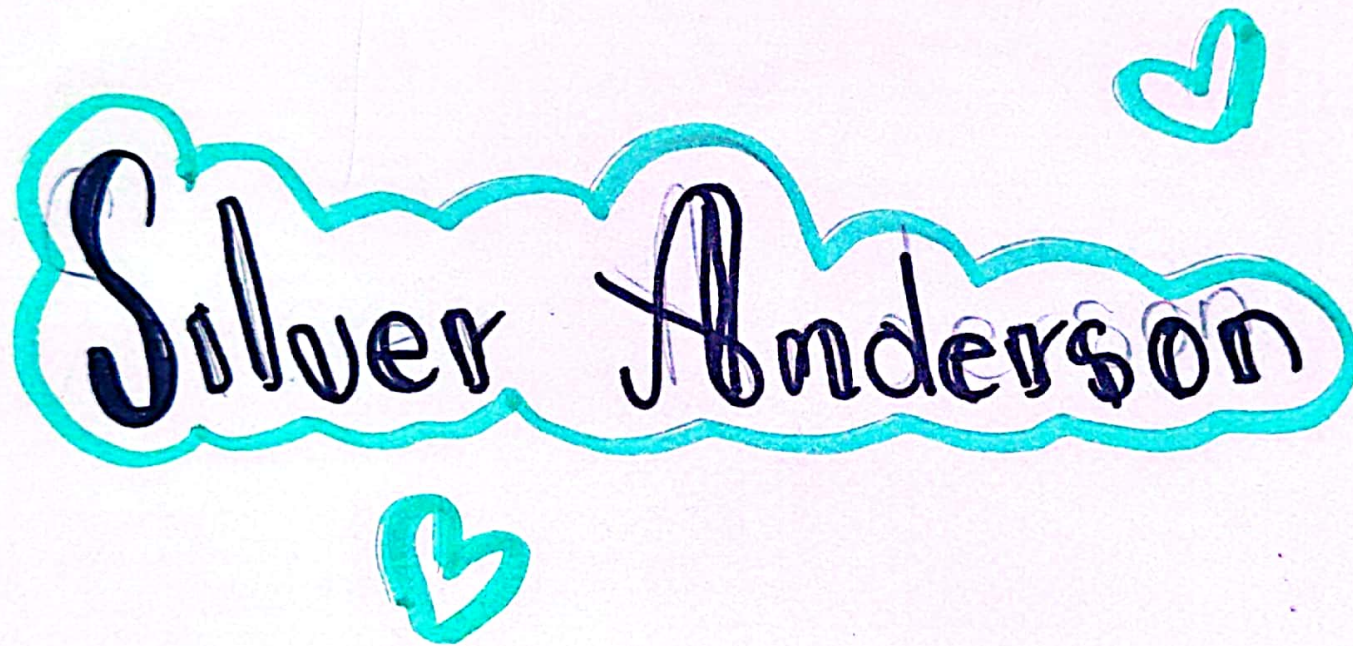 Silver Anderson